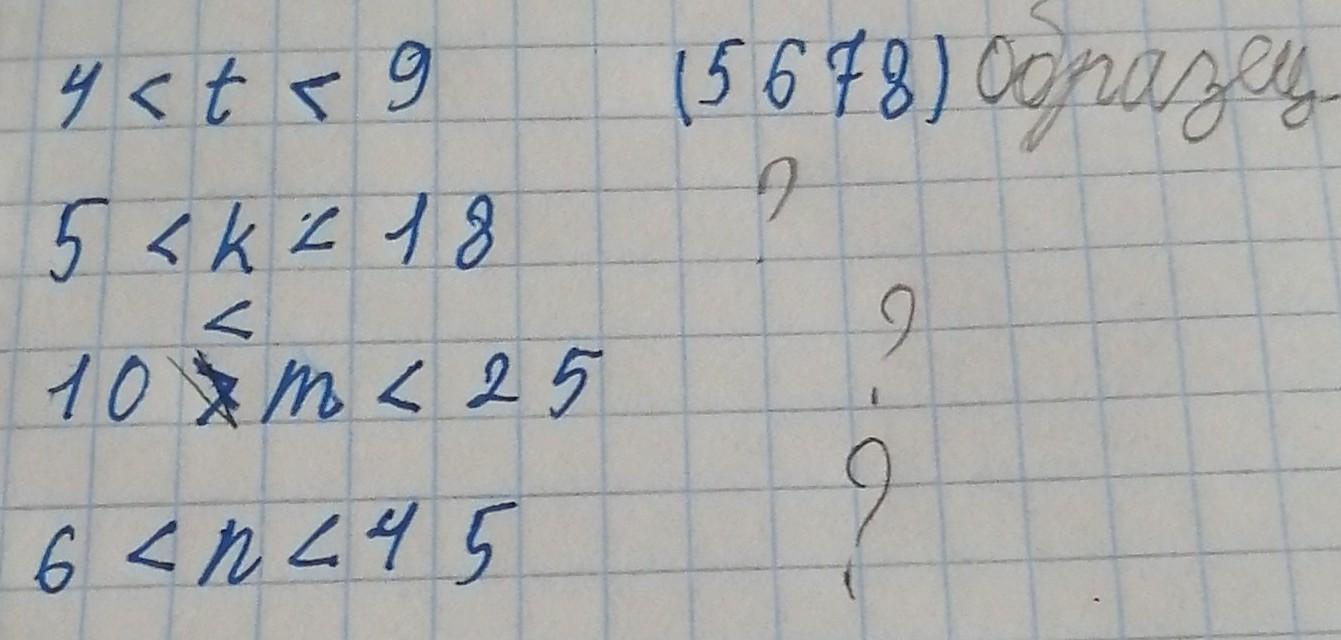 4 < t < 9 (5 6 7 8) Образец.
?
5 < k < 18
<
?
10 m < 25
?
6 < n < 45